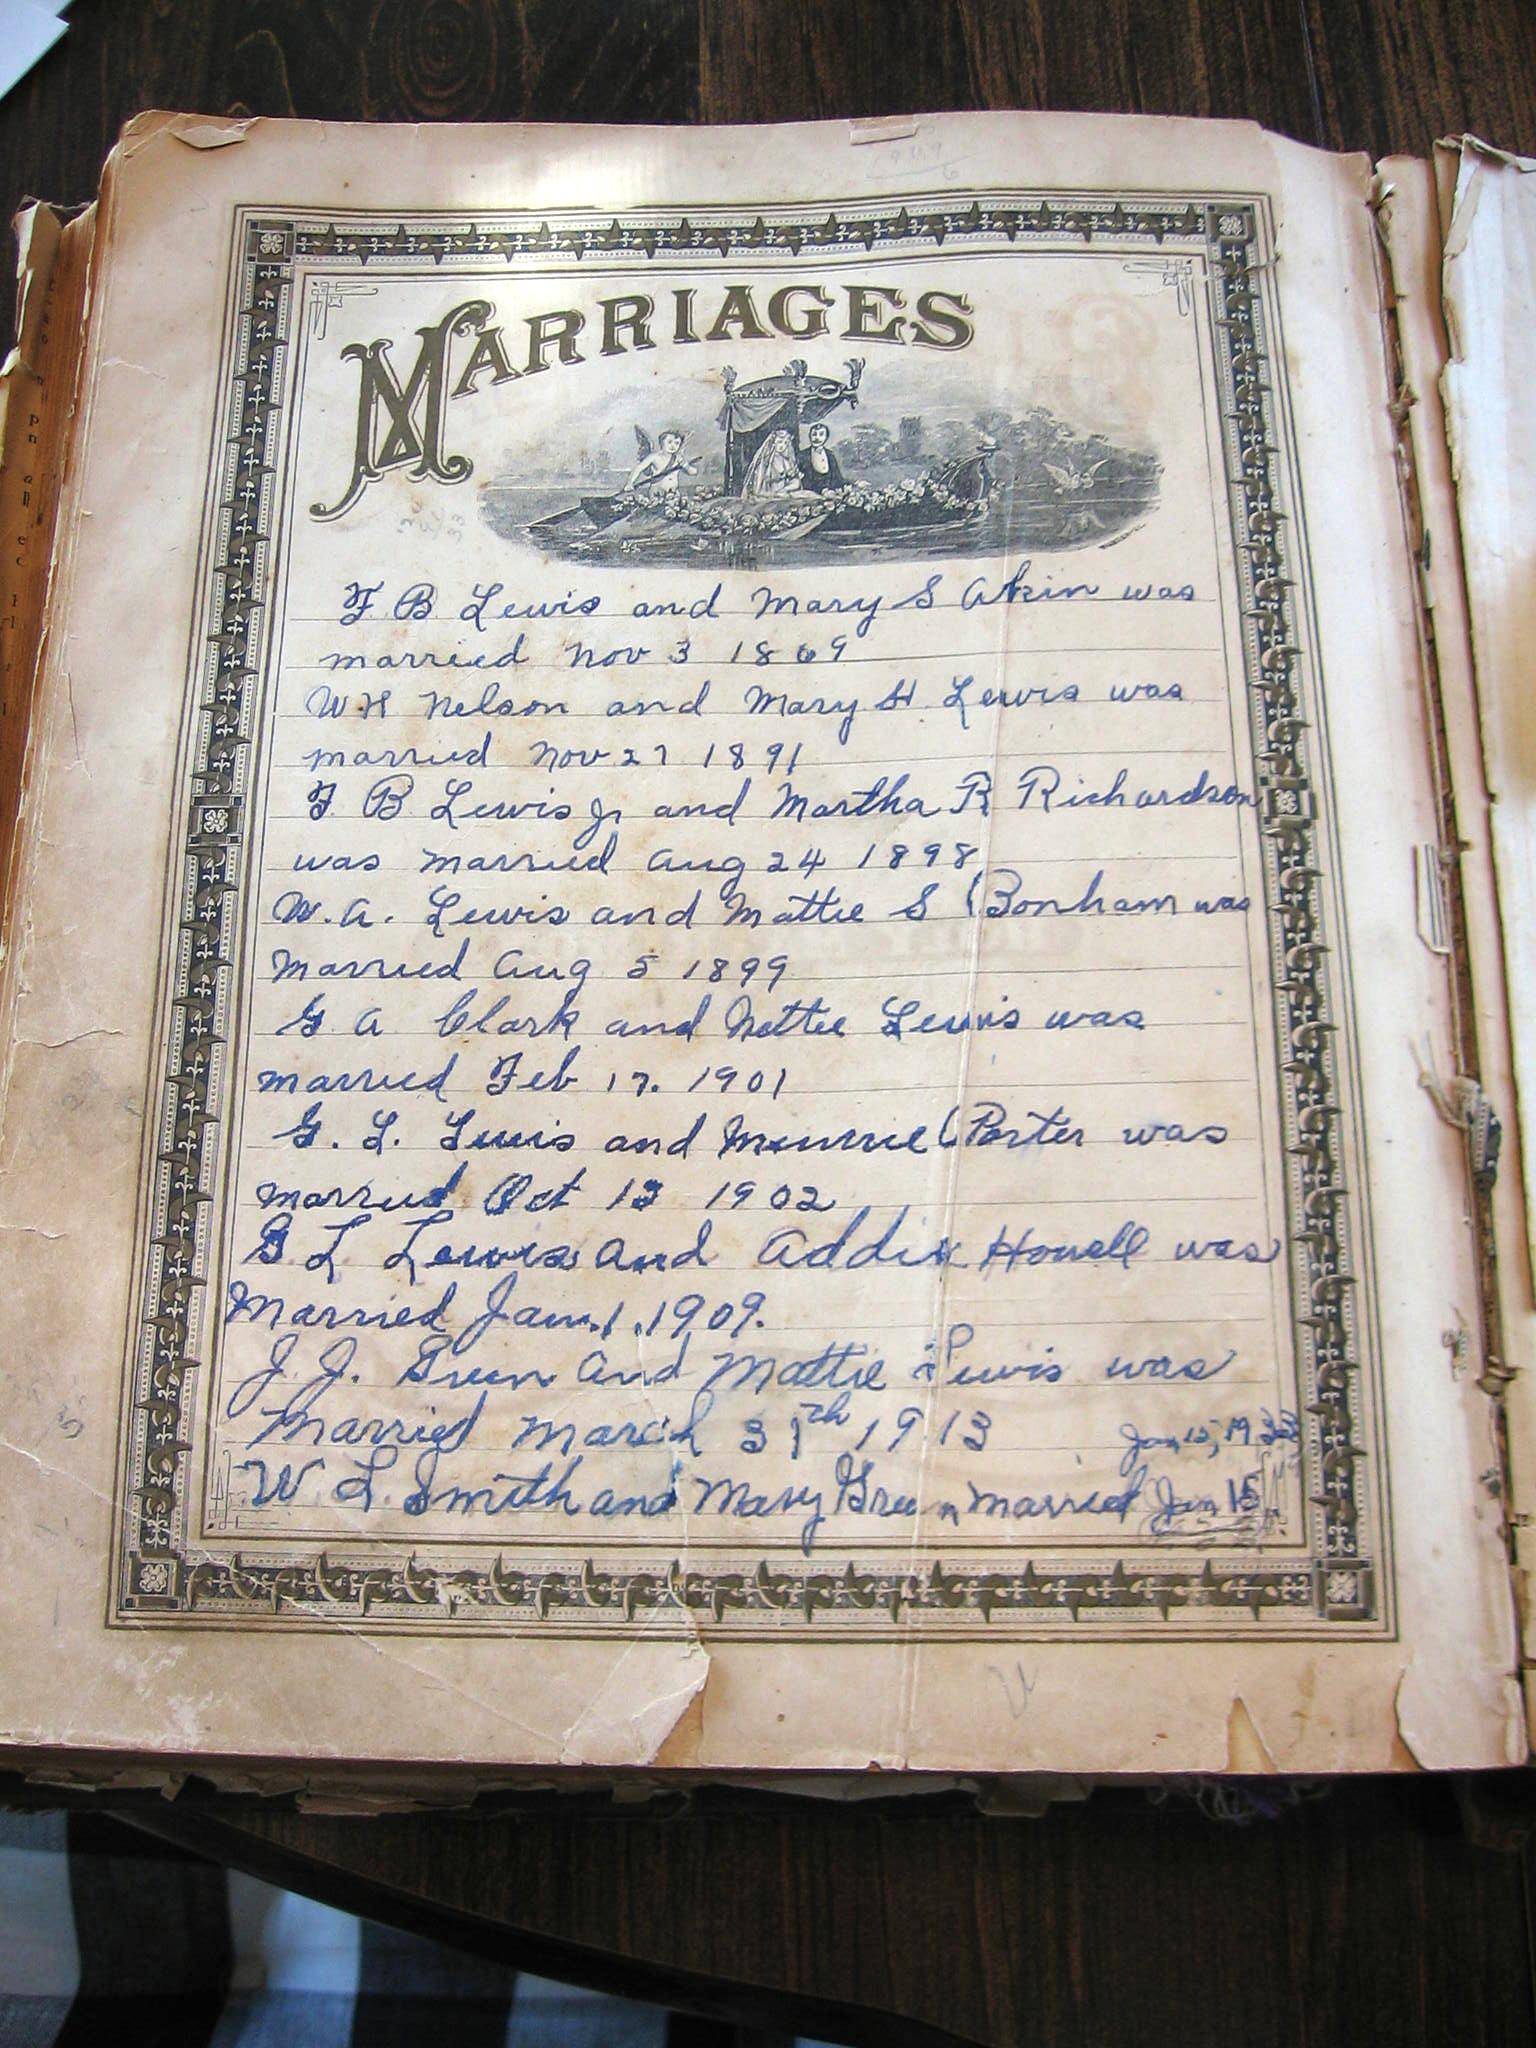 MARRIAGES
F. B. Lewis and Mary S Akin was
married Nov 3 1869
W H Nelson and Mary H. Lewis was
married Nov 27 1891
F. B. Lewis Jr and Martha R Richardson
was married Aug 24 1898
W. A. Lewis and Mattie S Bonham was
married Aug 5 1899
G A Clark and Nettie Lewis was
married Feb 17. 1901
G. L. Lewis and Minnie Porter was
married Oct 12 1902
G L Lewis and Addie Howell was
Married Jan. 1. 1909.
J. J. Green and Mattie Lewis was
Married March 31th 1913
Jan 15, 19
W L Smith and Mary Green married Jan 15